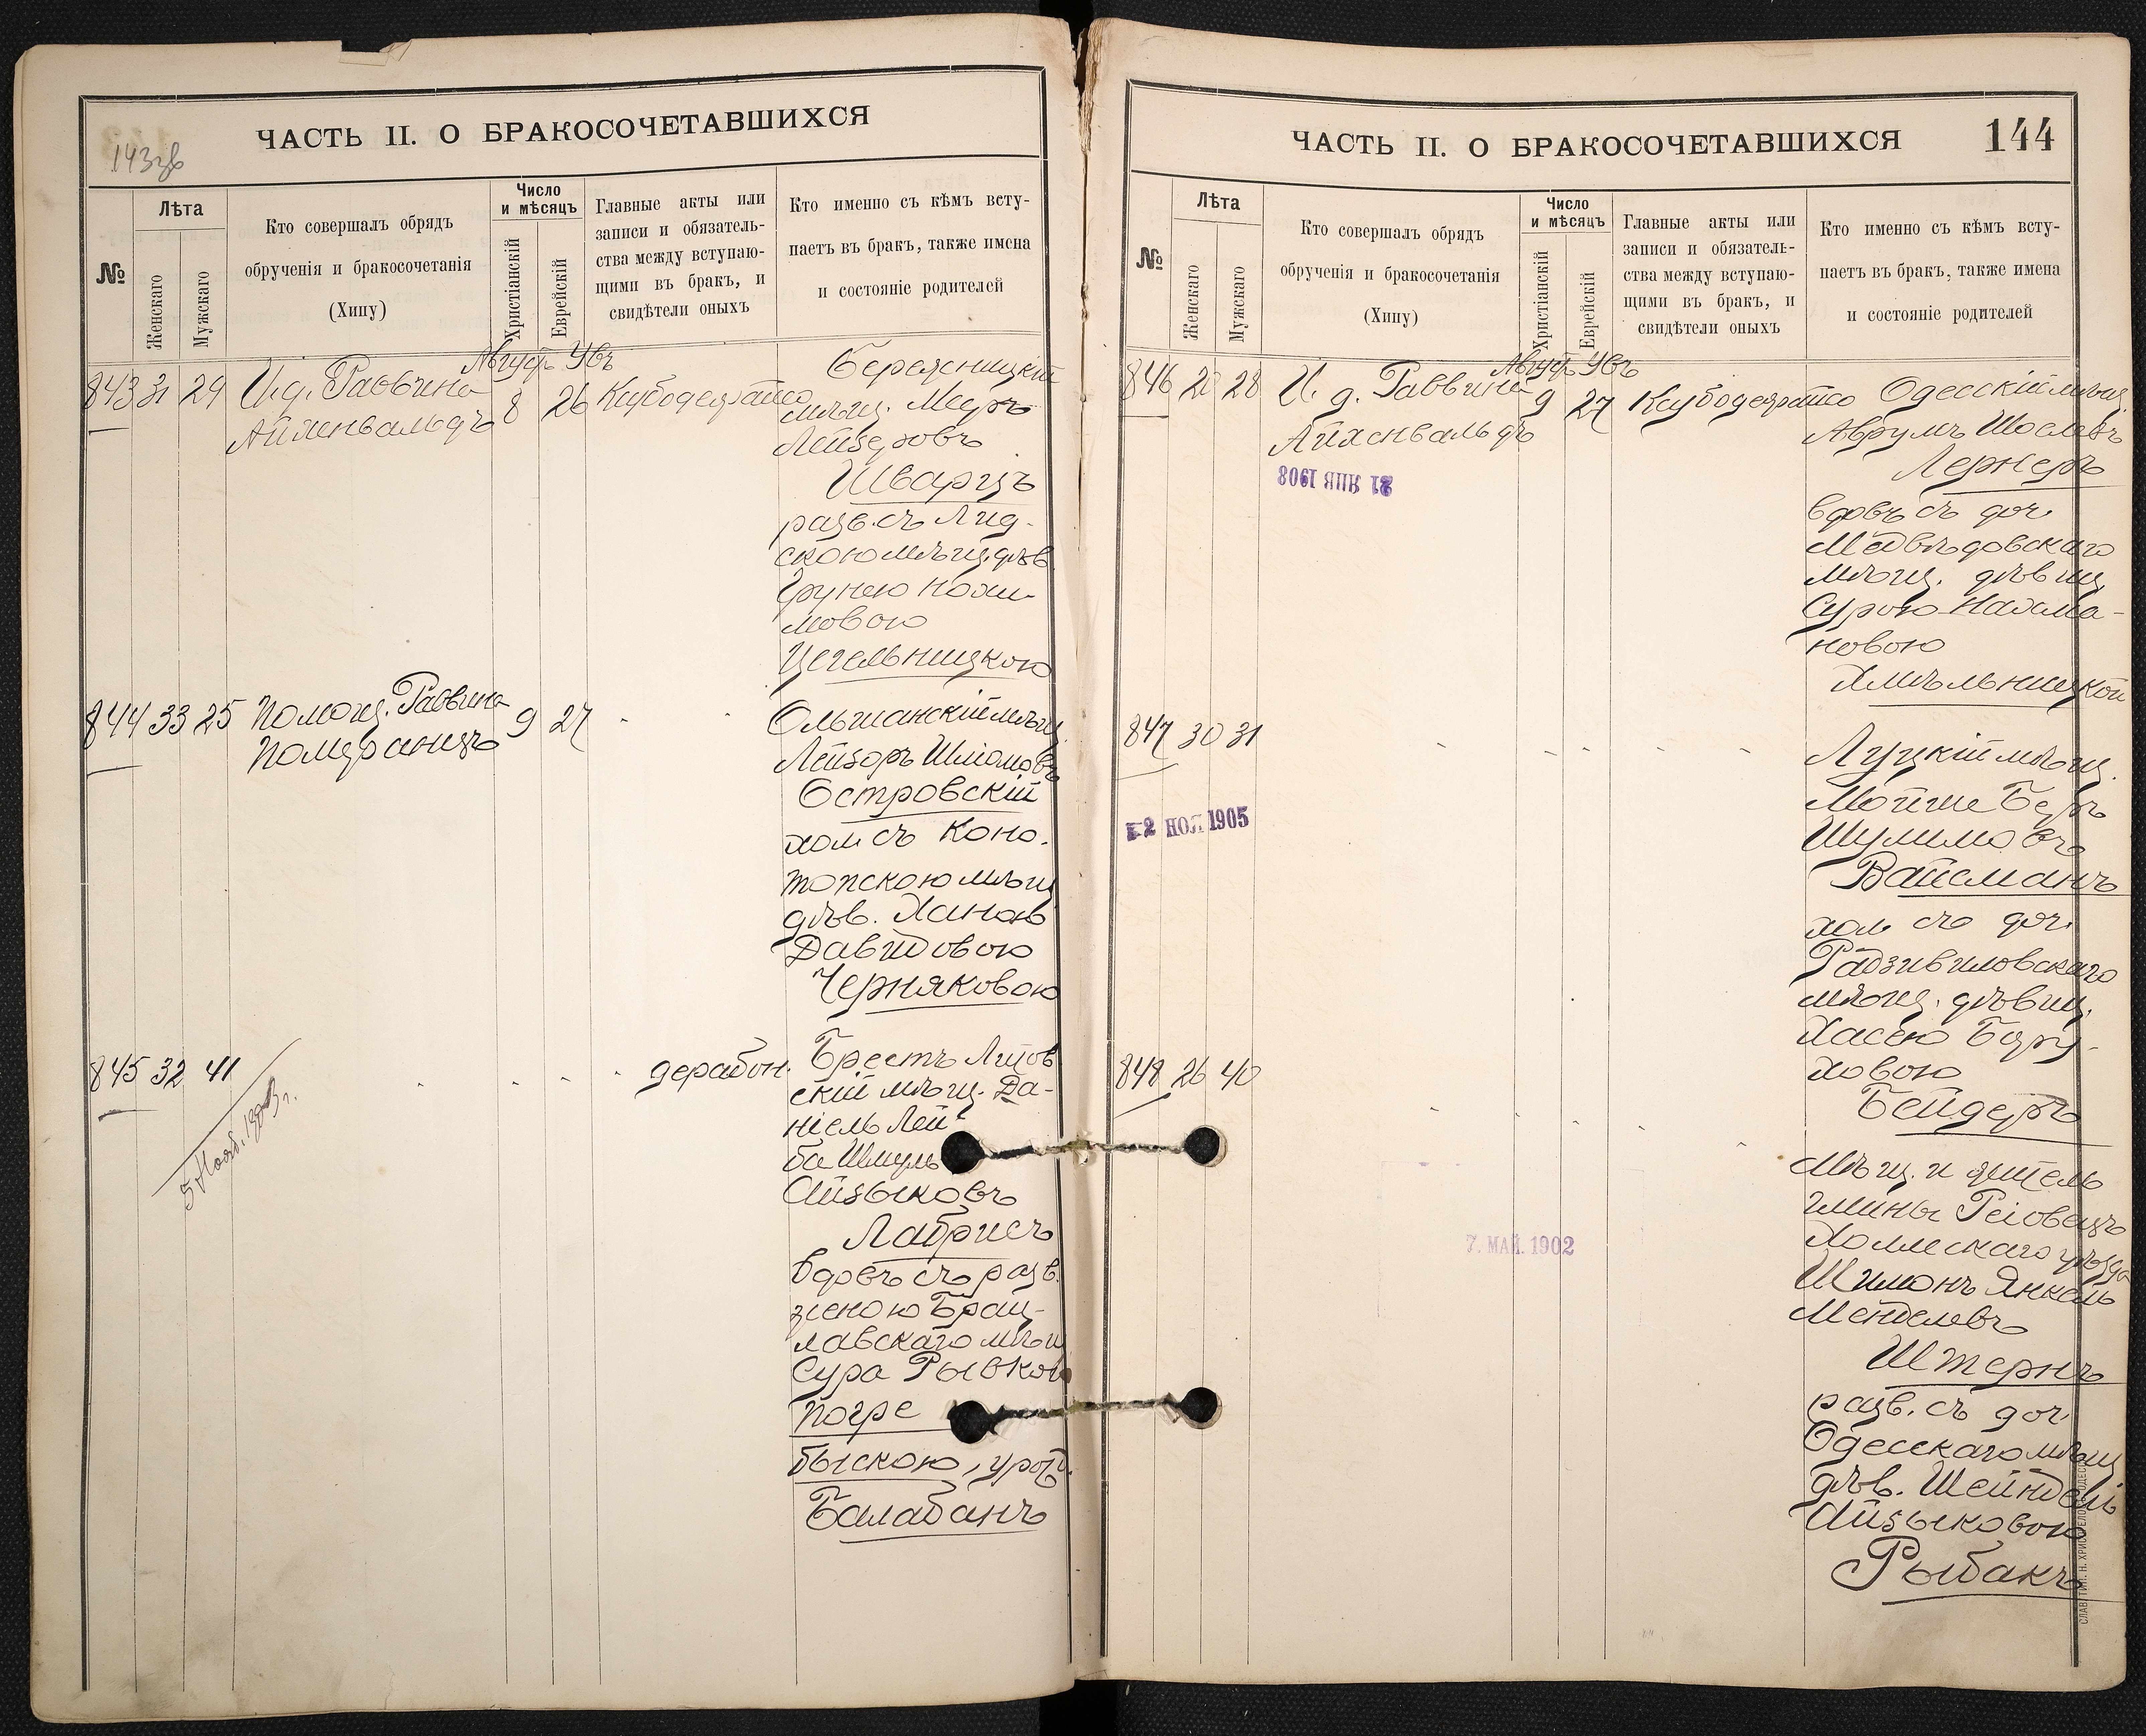 143зв
ЧАСТЬ II. О БРАКОСОЧЕТАВШИХСЯ
№
Лѣта
Женскаго
Мужскаго
Кто совершалъ обрядъ
обрученія и бракосочетанія
(Хипу)
Число
и мѣсяцъ
Христіанскій
Еврейскій
Главные акты или
записи и обязатель-
ства между вступаю-
щими въ бракъ, и
свидѣтели оныхъ
Кто именно съ кѣмъ всту-
паетъ въ бракъ, также имена
и состояніе родителей
Август. Увъ
843 31 29 И.д. Раввина
Айхенвальдъ
8 26
Бережницкій
мѣщ. Мееръ
Лейзеровъ
Шварцъ
разв. съ Лид-
скою мѣщ. дѣв.
Грунею Нохи-
мовою
Цегельницкою
844 33 25 Помощ. Раввина
Померанцъ
9 27
Ольшанскій мѣщ.
Лейзоръ Шліомовъ
Островскій
хол. съ Коно-
топскою мѣщ.
дѣв. Ханою
Давидовою
Черняковою
845 32 41
5 Нояб. 1903 г.
дерабон.
Брестъ Литов
скій мѣщ. Да-
ніель Лей-
ба Шмуль
Айзыковъ
Лабрисъ
вдовъ съ разв.
женою Брац-
лавскаго мѣщ
Сура Рывкою
Погре
быскою, урожд.
Балабанъ
ЧАСТЬ II. О БРАКОСОЧЕТАВШИХСЯ
144
№
Лѣта
Женскаго
Мужскаго
Кто совершалъ обрядъ
обрученія и бракосочетанія
(Хипу)
Число
и мѣсяцъ
Христіанскій
Еврейскій
Главные акты или
записи и обязатель-
ства между вступаю-
щими въ бракъ, и
свидѣтели оныхъ
Кто именно съ кѣмъ всту-
паетъ въ бракъ, также имена
и состояніе родителей
Август. Увъ
846 20 28 И. д. Раввина
Айхенвальдъ
9 27
21 ЯНВ 1908
Одесскій мѣщ.
Аврумъ Шослевъ
Лернеръ
вдовъ съ доч.
Медвѣдовскаго
мѣщ. дѣвиц.
Сурою Нахма-
новою
Хмѣльницкой
847 30 31
2 НОЯ 1905
Луцкій мѣщ.
Мойше Беръ
Шулимовъ
Вайсманъ
хол. съ доч.
Радзивиловскаго
мѣщ. дѣвиц.
Хасею Бору-
ховою
Бейдеръ
848 26 40
7. МАЙ. 1902
Мѣщ. и житель
гмины Реіовецъ
Холмскаго уѣзда
Шимонъ Янкель
Менделевъ
Штернъ
разв. съ доч.
Одесскаго мѣщ.
дѣв. Шейндель
Айзыковою
Рыбакъ